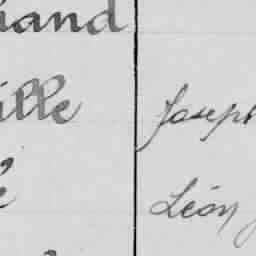 iand
ille Joseph
é Léon